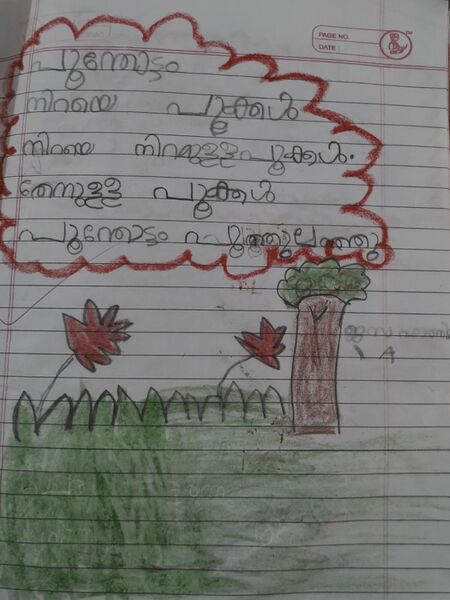 PAGE NO.
DATE :
പൂന്തോട്ടം
നിറയെ പൂക്കൾ
നിറയെ നിറമുള്ള പൂക്കൾ.
തേനുള്ള പൂക്കൾ
പൂന്തോട്ടം പൂത്തുലഞ്ഞു
1 A